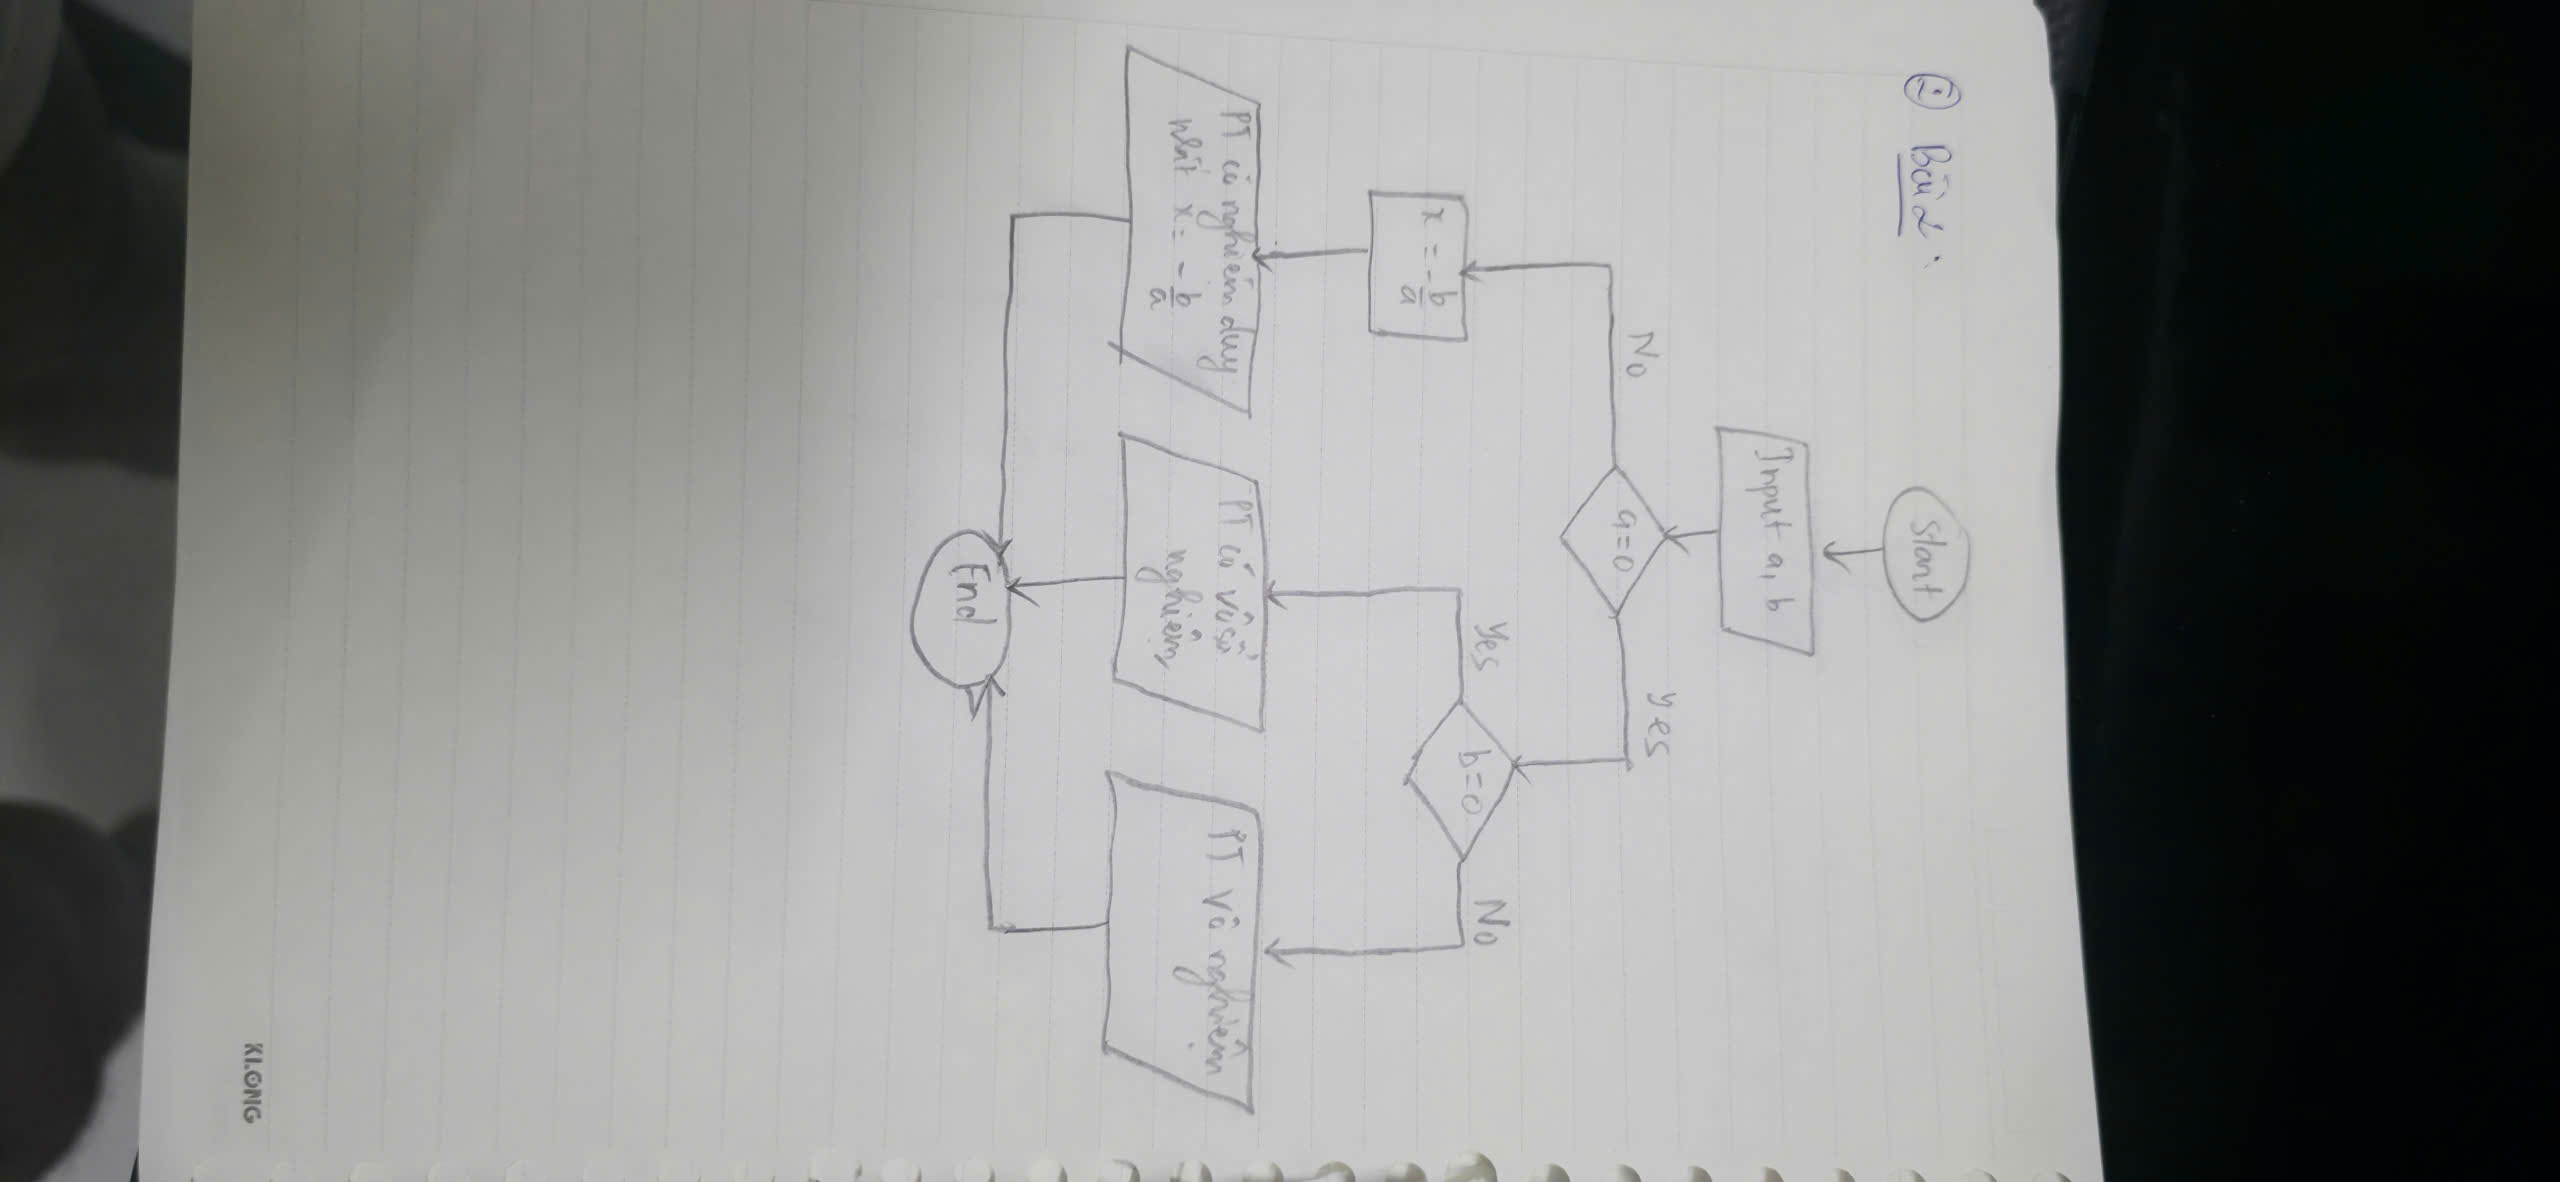 ② Bài 2:
Start
Input a, b
a=0
No
Yes
x = -b/a
b=0
Yes
No
PT có nghiệm duy
nhất x = -b/a
PT có vô số
nghiệm
PT vô nghiệm
End
KLONG